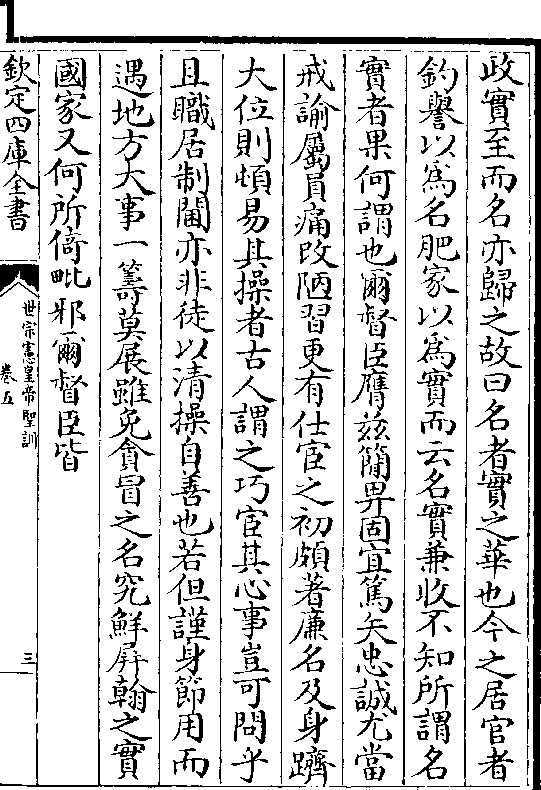 政實至而名亦歸之故曰名者實之華也今之居官者
釣譽以為名肥家以為實而云名實兼收不知所謂名
實者果何謂也爾督臣膺兹簡畀固宜篤矢忠誠尤當
戒諭屬員痛改陋習更有仕宦之初頗著廉名及身躋
大位則頓易其操者古人謂之巧宦其心事豈可問乎
且職居制閫亦非徒以清操自善也若但謹身節用而
遇地方大事一籌莫展雖免貪冒之名究鮮屏翰之實
國家又何所倚毗邪爾督臣皆
欽定四庫全書
世宗憲皇帝聖訓
卷五
三